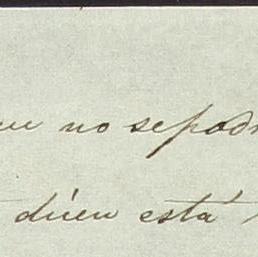 no sepod
dicen está